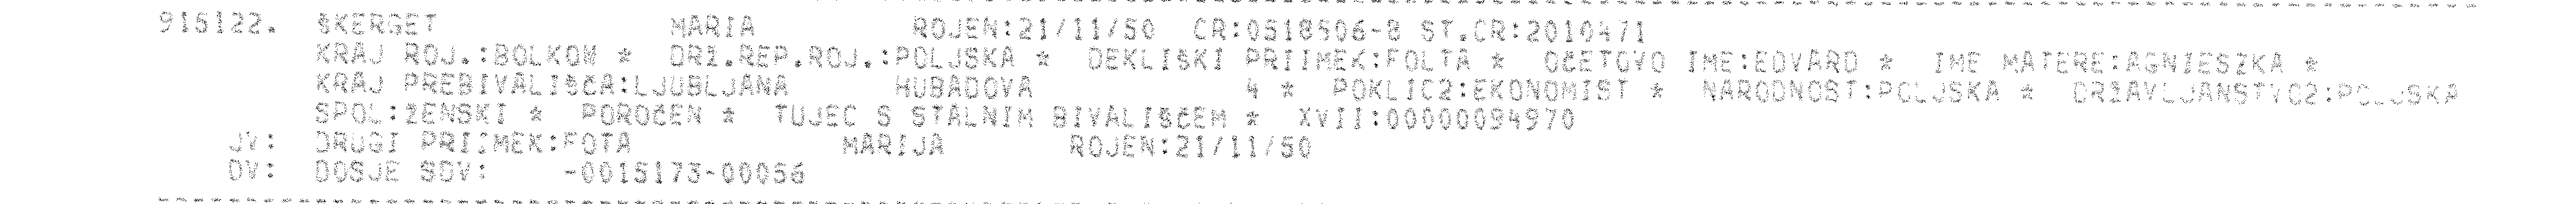 915122. ŠKERGET MARIA ROJEN:21/11/50 CR:0518506-8 ST.CR:2010471
KRAJ ROJ.:BOLKOW * DRŽ.REP.ROJ.:POLJSKA * DEKLIŠKI PRIIMEK:FOLTA * OČETOVO IME:EDVARD * IME MATERE:AGNIESZKA *
KRAJ PREBIVALIŠČA:LJUBLJANA HUBADOVA 4 * POKLIC2:EKONOMIST * NARODNOST:POLJSKA * DRŽAVLJANSTVO2:POLJSKA
SPOL:ŽENSKI * POROČEN * TUJEC S STALNIM BIVALIŠČEM * XVII:00000094970
JV: DRUGI PRIIMEK:FOTA MARIJA ROJEN:21/11/50
DV: DOSJE SDV: -0015173-00056